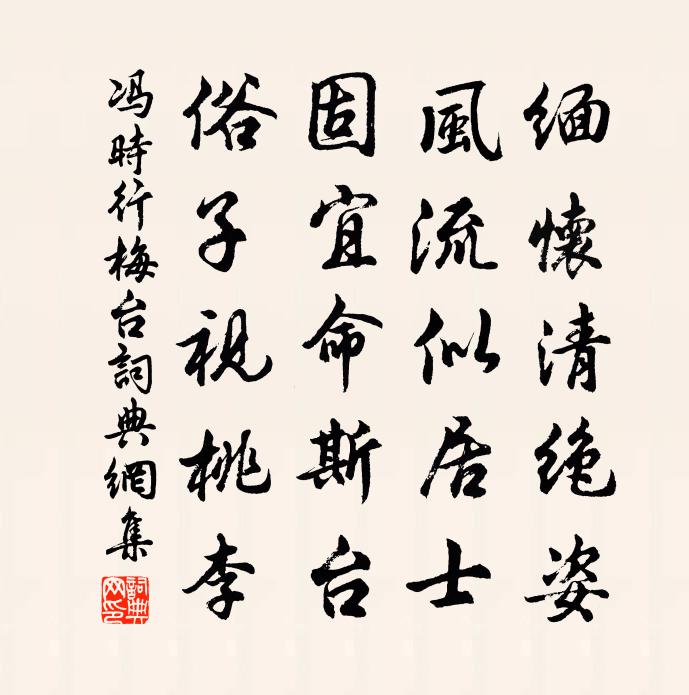 緬懷清絶姿
風流似居士
固宜命斯台
俗子視桃李
冯時行梅台詞典網集
詞典网印